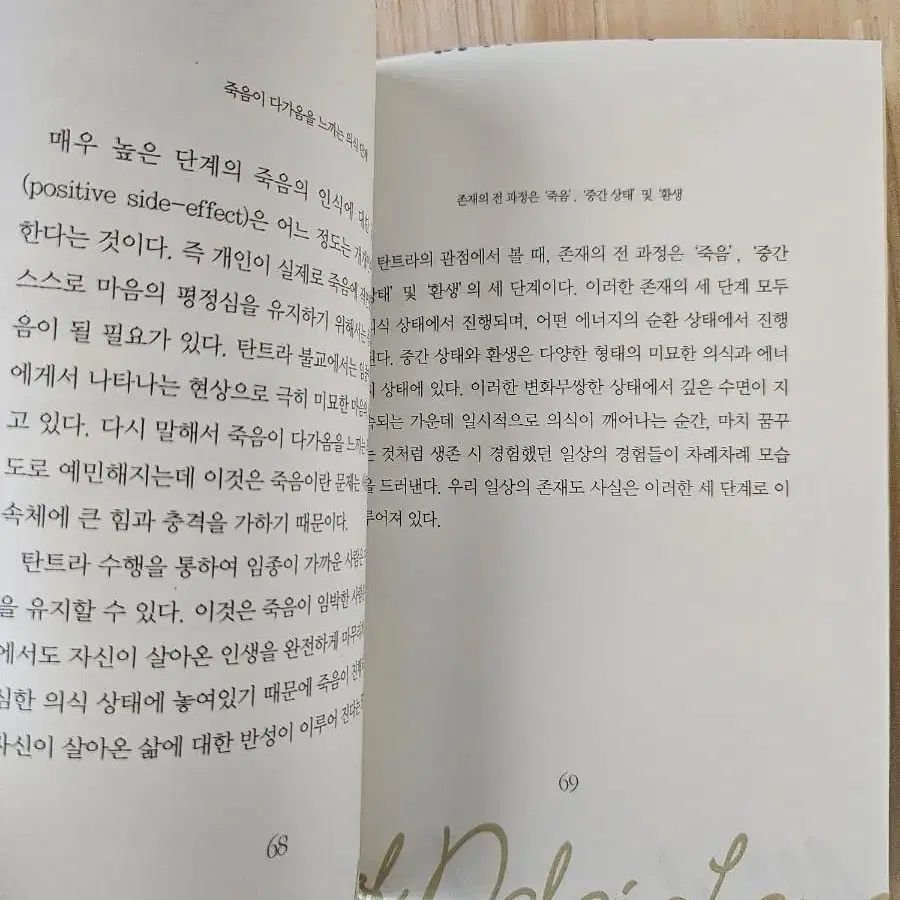 죽음이 다가옴을 느끼는 의식
매우 높은 단계의 죽음의 인식에
(positive side-effect)은 어느 정도는
한다는 것이다. 즉 개인이 실제로 죽음에
스스로 마음의 평정심을 유지하기 위해서는
음이 될 필요가 있다. 탄트라 불교에서는
에게서 나타나는 현상으로 극히 미묘한 마음의
고 있다. 다시 말해서 죽음이 다가옴을 느끼는
도로 예민해지는데 이것은 죽음이란 문제는
속체에 큰 힘과 충격을 가하기 때문이다.
탄트라 수행을 통하여 임종이 가까운 사람은
을 유지할 수 있다. 이것은 죽음이 임박한
에서도 자신이 살아온 인생을 완전하게
심한 의식 상태에 놓여있기 때문에 죽음이
자신이 살아온 삶에 대한 반성이 이루어 진다는
68
존재의 전 과정은 '죽음', '중간 상태' 및 '환생
탄트라의 관점에서 볼 때, 존재의 전 과정은 '죽음', '중간
상태' 및 '환생'의 세 단계이다. 이러한 존재의 세 단계 모두
의식 상태에서 진행되며, 어떤 에너지의 순환 상태에서 진행
된다. 중간 상태와 환생은 다양한 형태의 미묘한 의식과 에너
지 상태에 있다. 이러한 변화무쌍한 상태에서 깊은 수면이 지
속되는 가운데 일시적으로 의식이 깨어나는 순간, 마치 꿈꾸
는 것처럼 생존 시 경험했던 일상의 경험들이 차례차례 모습
을 드러낸다. 우리 일상의 존재도 사실은 이러한 세 단계로 이
루어져 있다.
69
Dalai